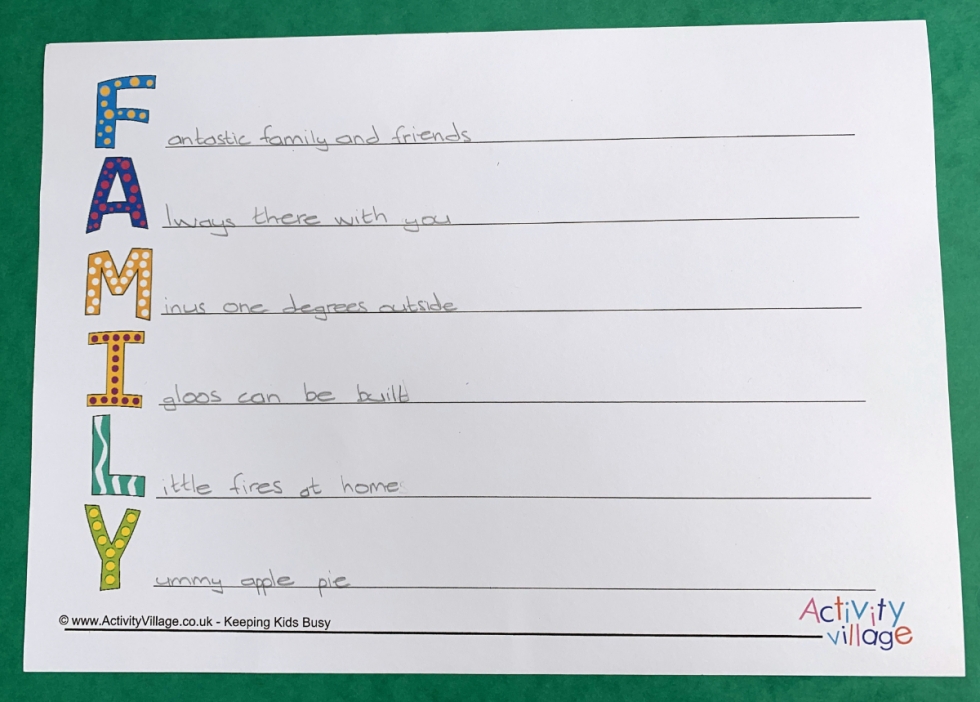 Fantastic family and friends
Always there with you
Minus one degrees outside
Igloos can be built
Little fires at home
Yummy apple pie
© www.ActivityVillage.co.uk - Keeping Kids Busy
Activity
village